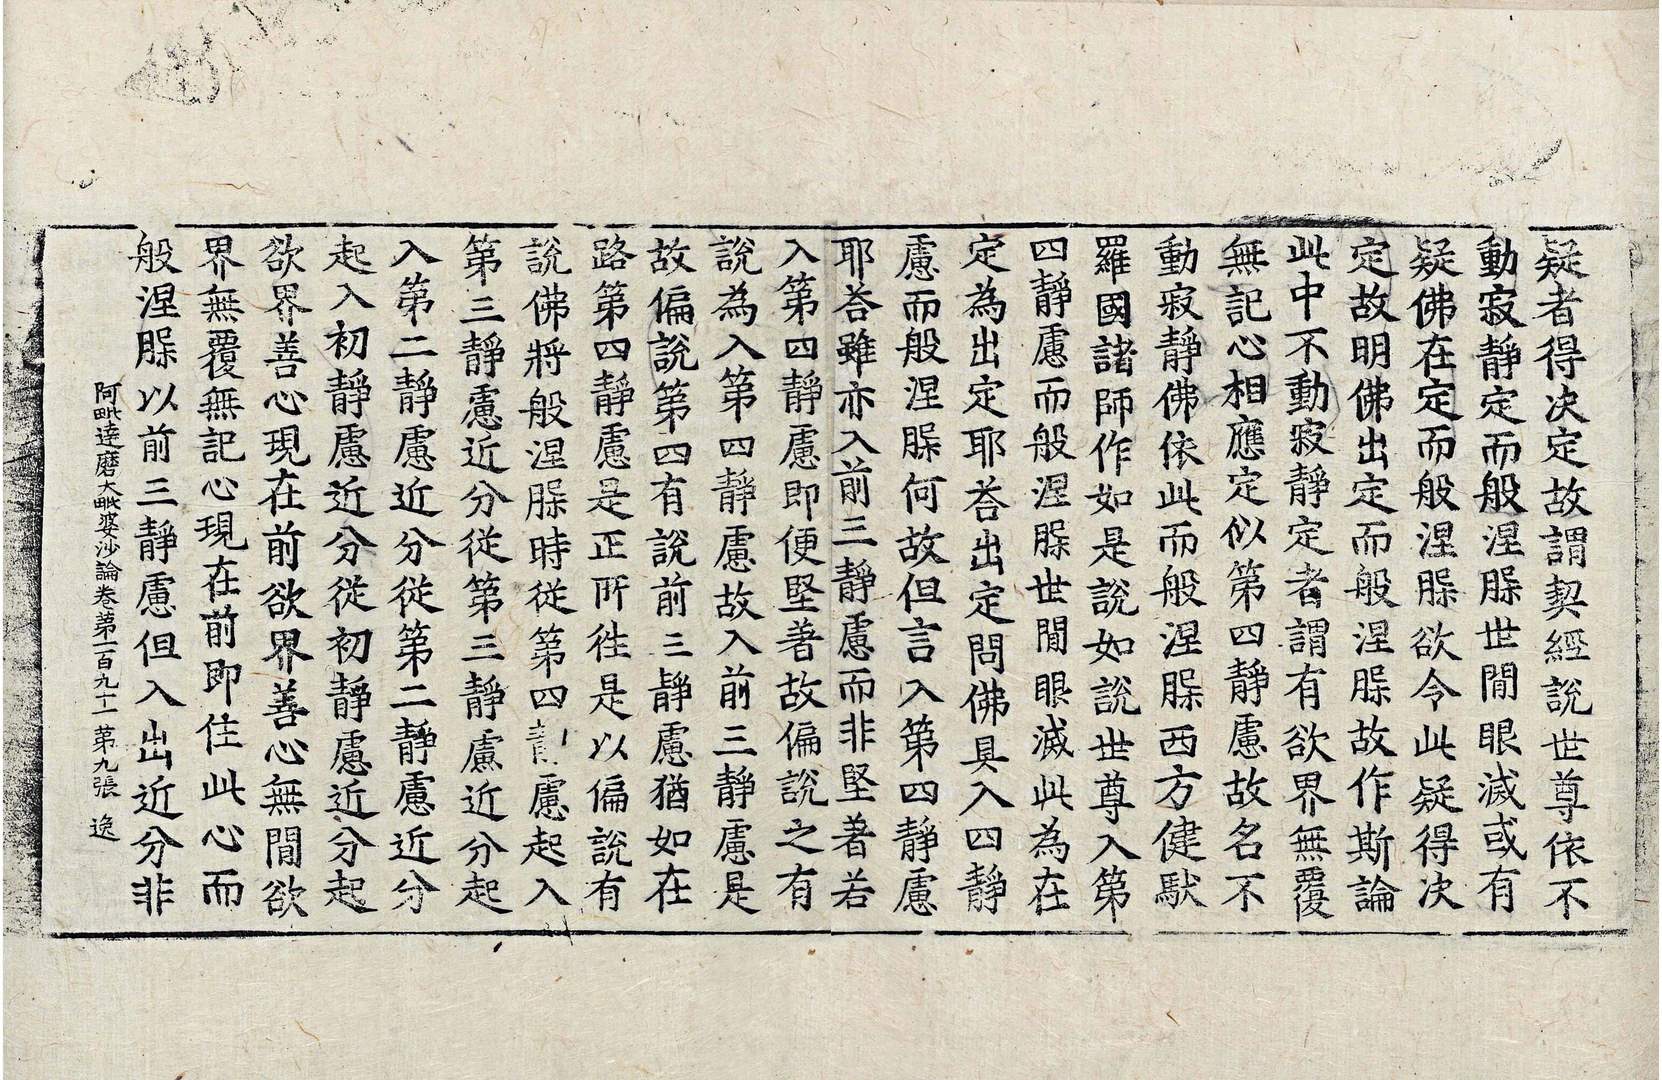 疑者得決定故謂契經說世尊依不
動寂靜定而般涅槃世閒眼滅或有
疑佛在定而般涅槃欲令此疑得決
定故明佛出定而般涅槃故作斯論
此中不動寂靜定者謂有欲界無覆
無記心相應定似第四靜慮故名不
動寂靜佛依此而般涅槃西方健馱
羅國諸師作如是說如說世尊入第
四靜慮而般涅槃世閒眼滅此為在
定為出定耶荅出定問佛具入四靜
慮而般涅槃何故但言入第四靜慮
耶荅雖亦入前三靜慮而非堅著若
入第四靜慮即便堅著故偏說之有
說為入第四靜慮故入前三靜慮是
故偏說第四有說前三靜慮猶如在
路第四靜慮是正所徃是以偏說有
說佛將般涅槃時從第四靜慮起入
第三靜慮近分從第三靜慮近分起
入第二靜慮近分從第二靜慮近分
起入初靜慮近分從初靜慮近分起
欲界善心現在前欲界善心無閒欲
界無覆無記心現在前即住此心而
般涅槃以前三靜慮但入出近分非
阿毗達磨大毗婆沙論卷第一百九十一 第九張 逸